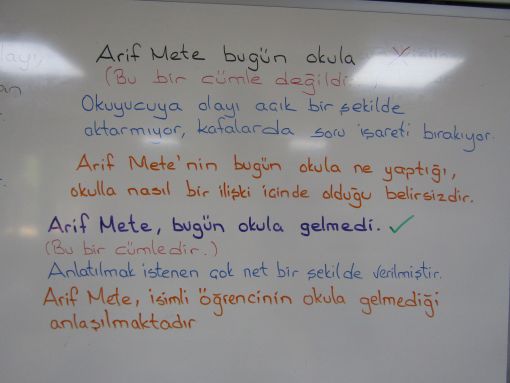 Arif Mete bugün okula X
(Bu bir cümle değildir.)
Okuyucuya olayı açık bir şekilde
aktarmıyor, kafalarda soru işareti bırakıyor.
Arif Mete'nin bugün okula ne yaptığı,
okulla nasıl bir ilişki içinde olduğu belirsizdir.
Arif Mete, bugün okula gelmedi. ✓
(Bu bir cümledir.)
Anlatılmak istenen çok net bir şekilde verilmiştir.
Arif Mete, isimli öğrencinin okula gelmediği
anlaşılmaktadır